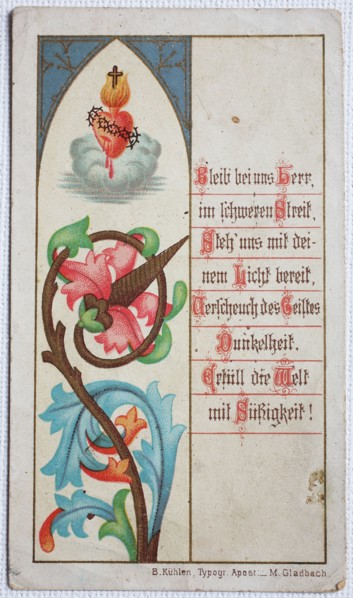 Bleib bei uns Herr,
im schweren Streit,
Steh' uns mit dei-
nem Licht bereit,
Verscheuch des Geistes
Dunkelheit.
Erfüll die Welt
mit Süßigkeit!
B. Kühlen, Typogr. Apost._ M. Gladbach.